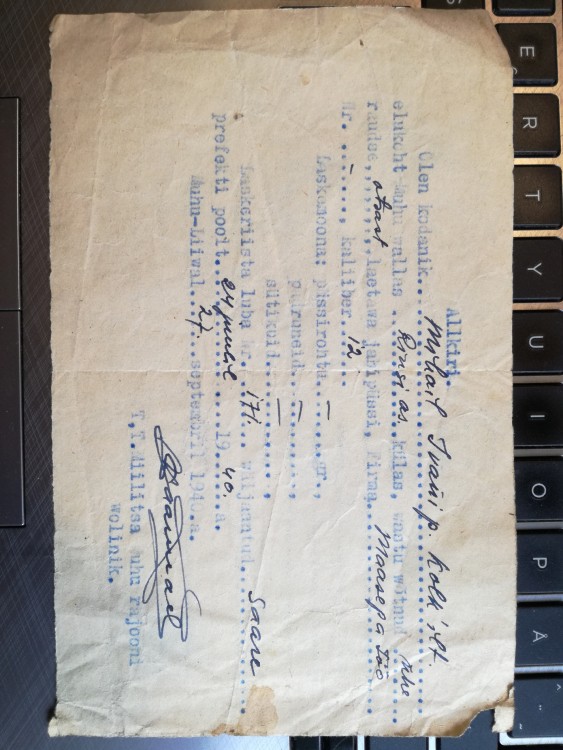 Allkiri.
Olen kodanik.. Mihail Ivani p. Kolk'ilt.
elukoht Muhu wallas .. Rinsi as. külas, wastu wõtnud ühe
raudse,,,,,, otsast laetawa jahipüssi, Firma Maasepa töö
Nr. ..–...., kaliiber.. 12 ...
Laskemoona: püssirohtu.. – ....gr.,
padruneid.. – ....,
sütikuid.. – ....,
Laskeriista luba Nr. 171. wäljaantud...... Saare
prefekti poolt.. 24 juulil ....19.. 40. a.
Muhu-Liiwal.. 27. ..septembril 1940.a.
T.T.Miilitsa Muhu rajooni
wolinik.
E
R
T
Y
U
I
O
P
Å